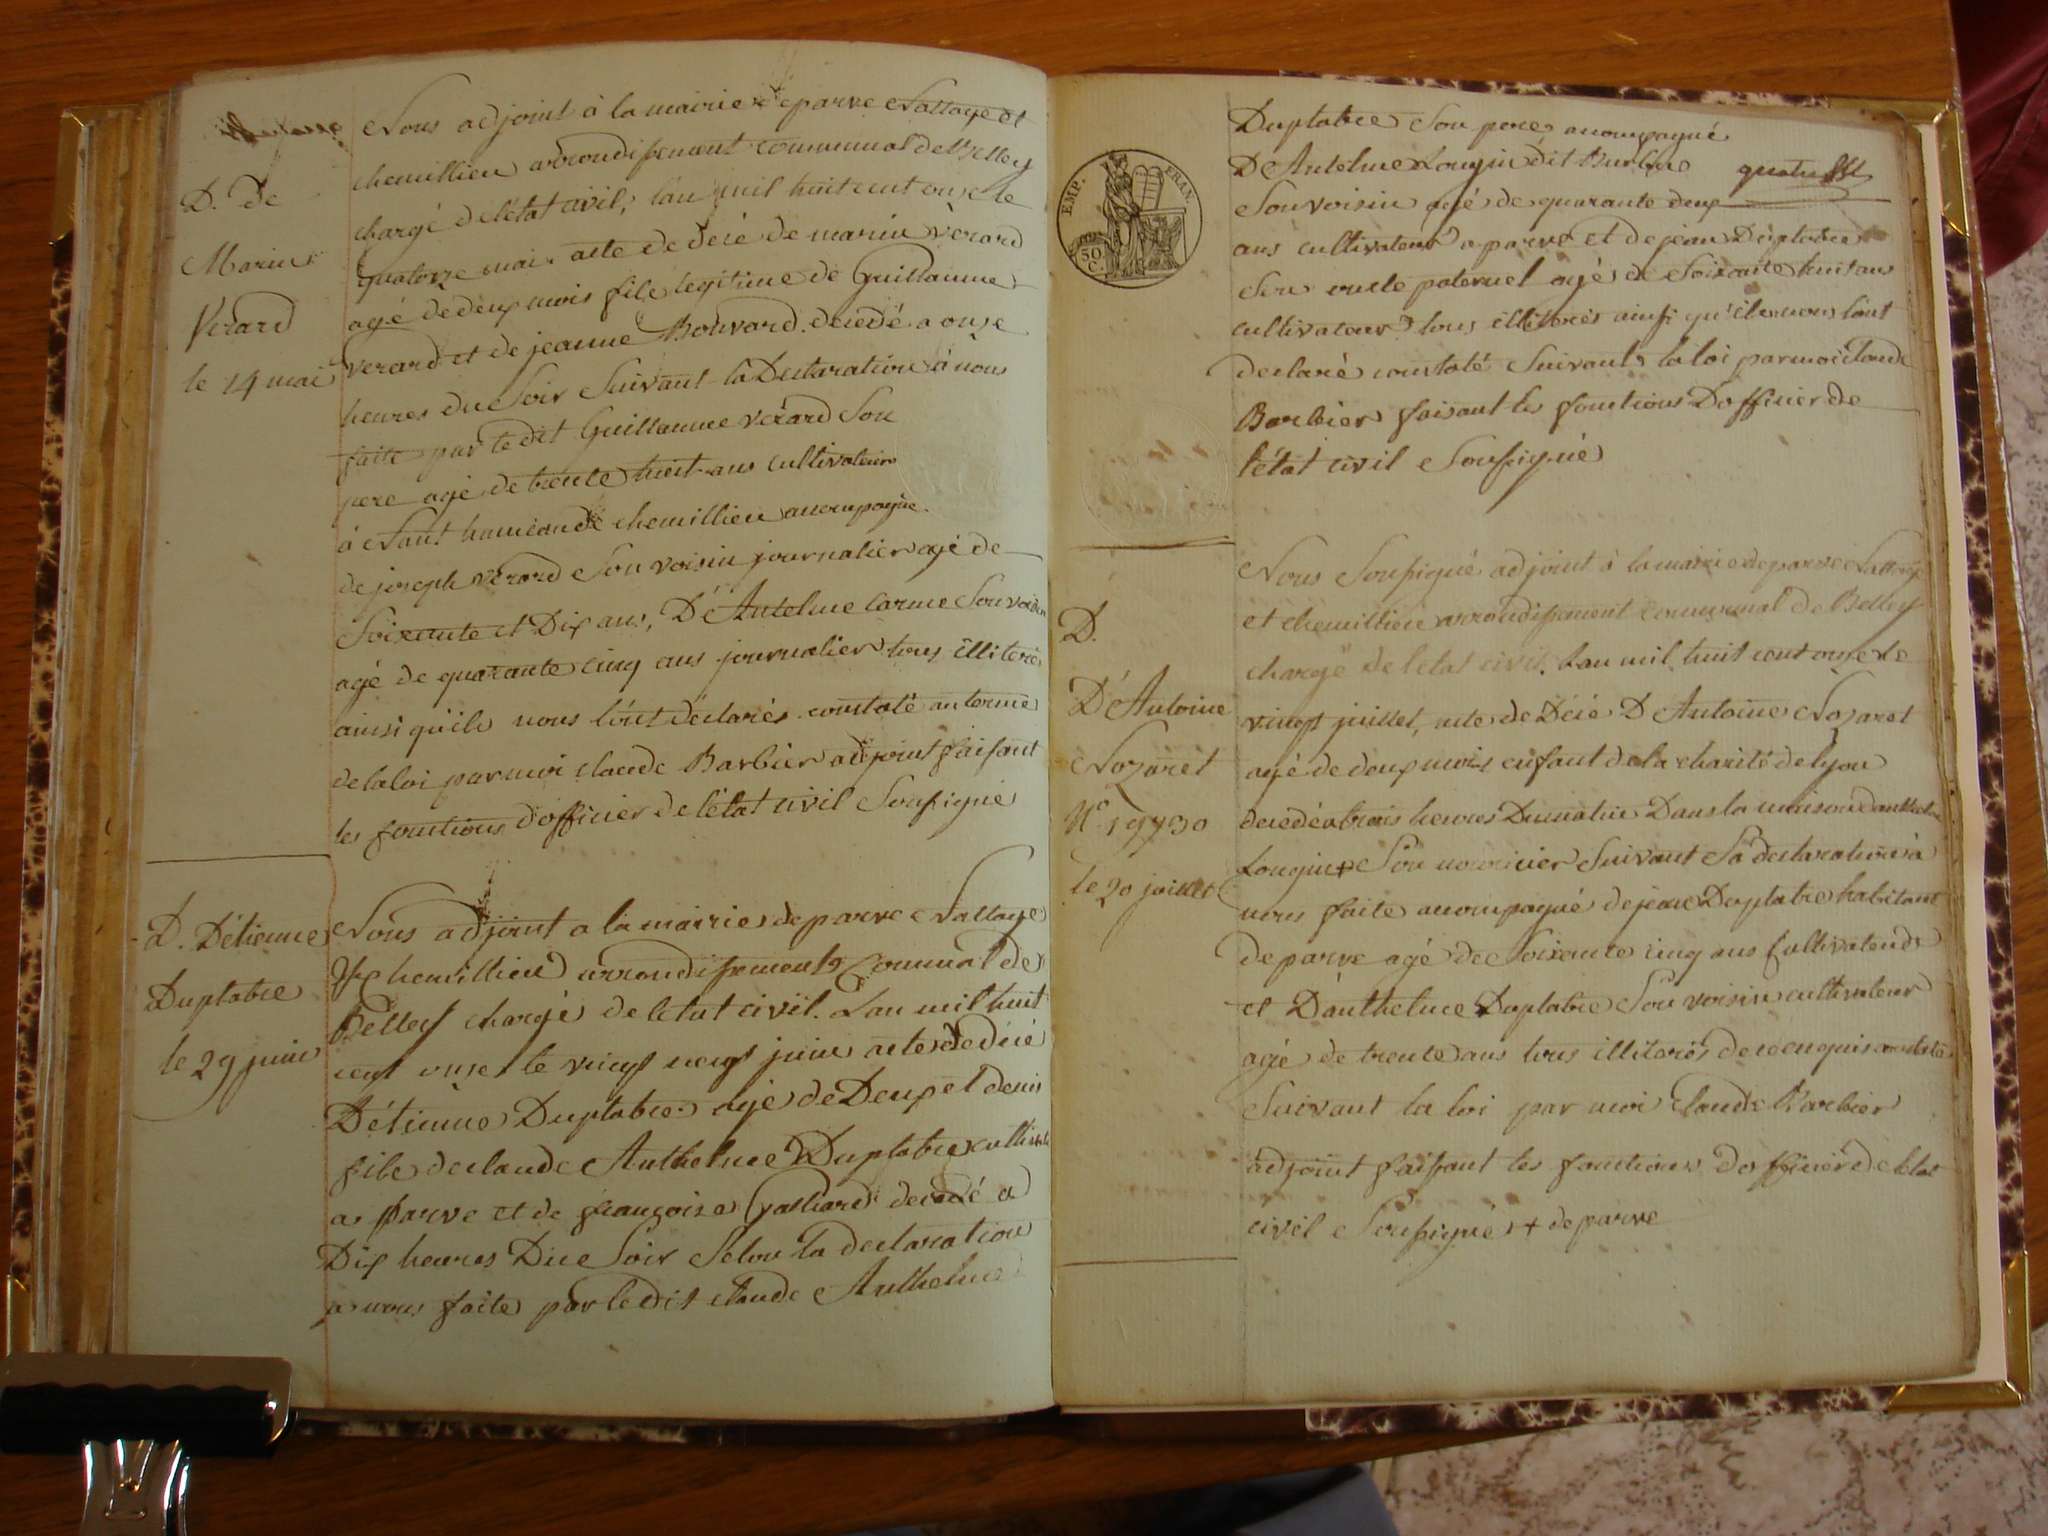 D. de
Marin
Verard
le 14 mai
Nous adjoint à la mairie de parve Nattage et
chemillieu arrondissement communal de Belley
chargé de létat civil, lan mil huit cent onze le
quatorze mai acte de décé de marin vérard
agé de deux mois fils legitime de Guillaume
verard et de jeanne Bouvard decedé a onze
heures du Soir Suivant la Declaration à nous
faite par le dit Guillaume vérard Son
pere agé de trente huit ans cultivateur
à Nant hameau de chemillieu accompagné
de joseph vérard Son voisin journalier agé de
Soixante et Dix ans, D'Antelme carme Son voisin
agé de quarante cinq ans journalier tous illiterés
ainsi quils nous l'ont declarés constaté au terme
de la loi par moi claude Barbier adjoint faisant
les fonctions d'officier de l'état civil Soussigné
D. Détienne
Duplatre
le 29 juin
Nous adjoint a la mairie de parve Nattage
& chemillieu arrondissement Comunal de
Belley chargé de letat civil. Lan mil huit
cent onze le vingt neuf juin acte de décé
Détienne Duplatre agé de Deux et demi
fils de claude Anthelme Duplatre
a parve et de françoise Gaillard decedé a
Dix heures Du Soir Selon la declaration
a nous faite par le dit claude Anthelme
EMP. FRAN.
50 C.
Duplatre Son pere accompagné
D'Antelme Longin dit
Son voisin agé de quarante deux
ans cultivateur a parve et de jean Duplatre
Son oncle paternel agé de Soixante huit ans
cultivateur tous illiterés ainsi qu'ils nous l'ont
declaré constaté Suivant la loi par moi claude
Barbier faisant les fonctions Dofficier de
l'état civil Soussigné
D.
D'Antoine
Nozaret
N° 19730
le 20 juillet
Nous Soussigné adjoint à la mairie de parve Nattage
et chemillieu arrondissement communal de Belley
chargé de l'état civil. Lan mil huit cent onze le
vingt juillet, acte de Décé D'Antoine Nozaret
agé de deux mois enfant de la charité de lyon
decedé a trois heures Du matin Dans la maison danthelme
Longin + Son nourricier Suivant Sa declaration à
nous faite accompagné de jean Duplatre habitant
de parve agé de Soixante cinq ans Cultivateur
et D'anthelme Duplatre Son voisin cultivateur
agé de trente ans tous illiterés de ce enquis constaté
Suivant la loi par moi Claude Barbier
adjoint faisant les fonctions Dofficier de létat
civil Soussigné + de parve